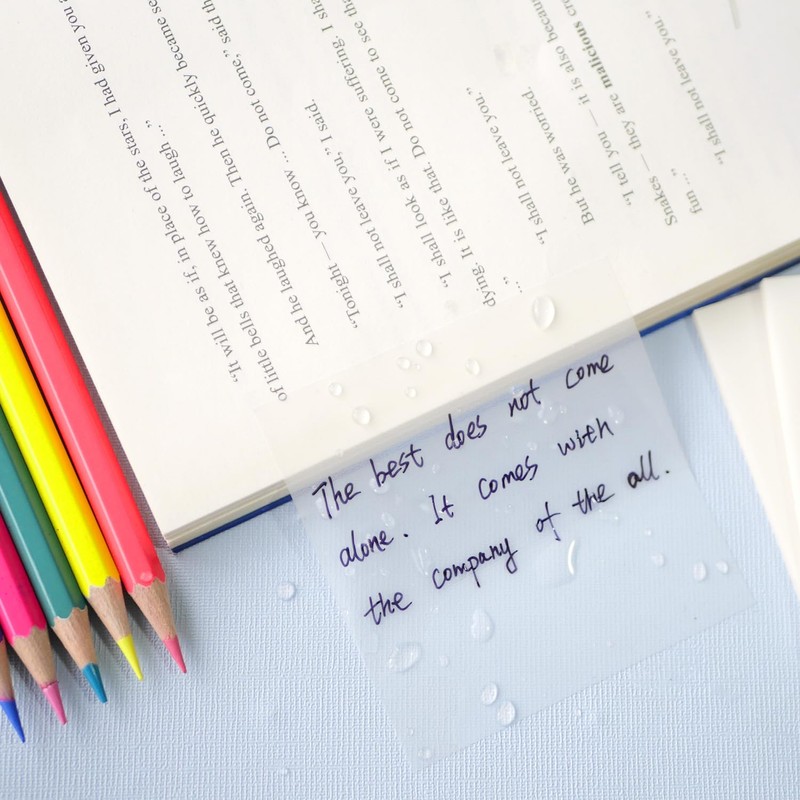 "It will be as if, in place of the stars, I had given you a
of little bells that knew how to laugh ..."
And he laughed again. Then he quickly became se
"Tonight — you know ... Do not come," said th
"I shall not leave you," I said.
"I shall look as if I were suffering. I sha
dying. It is like that. Do not come to see tha
..."
"I shall not leave you."
But he was worried.
"I tell you — it is also becaus
Snakes — they are malicious cre
fun ..."
"I shall not leave you."
The best does not come
alone. It comes with
the company of the all.